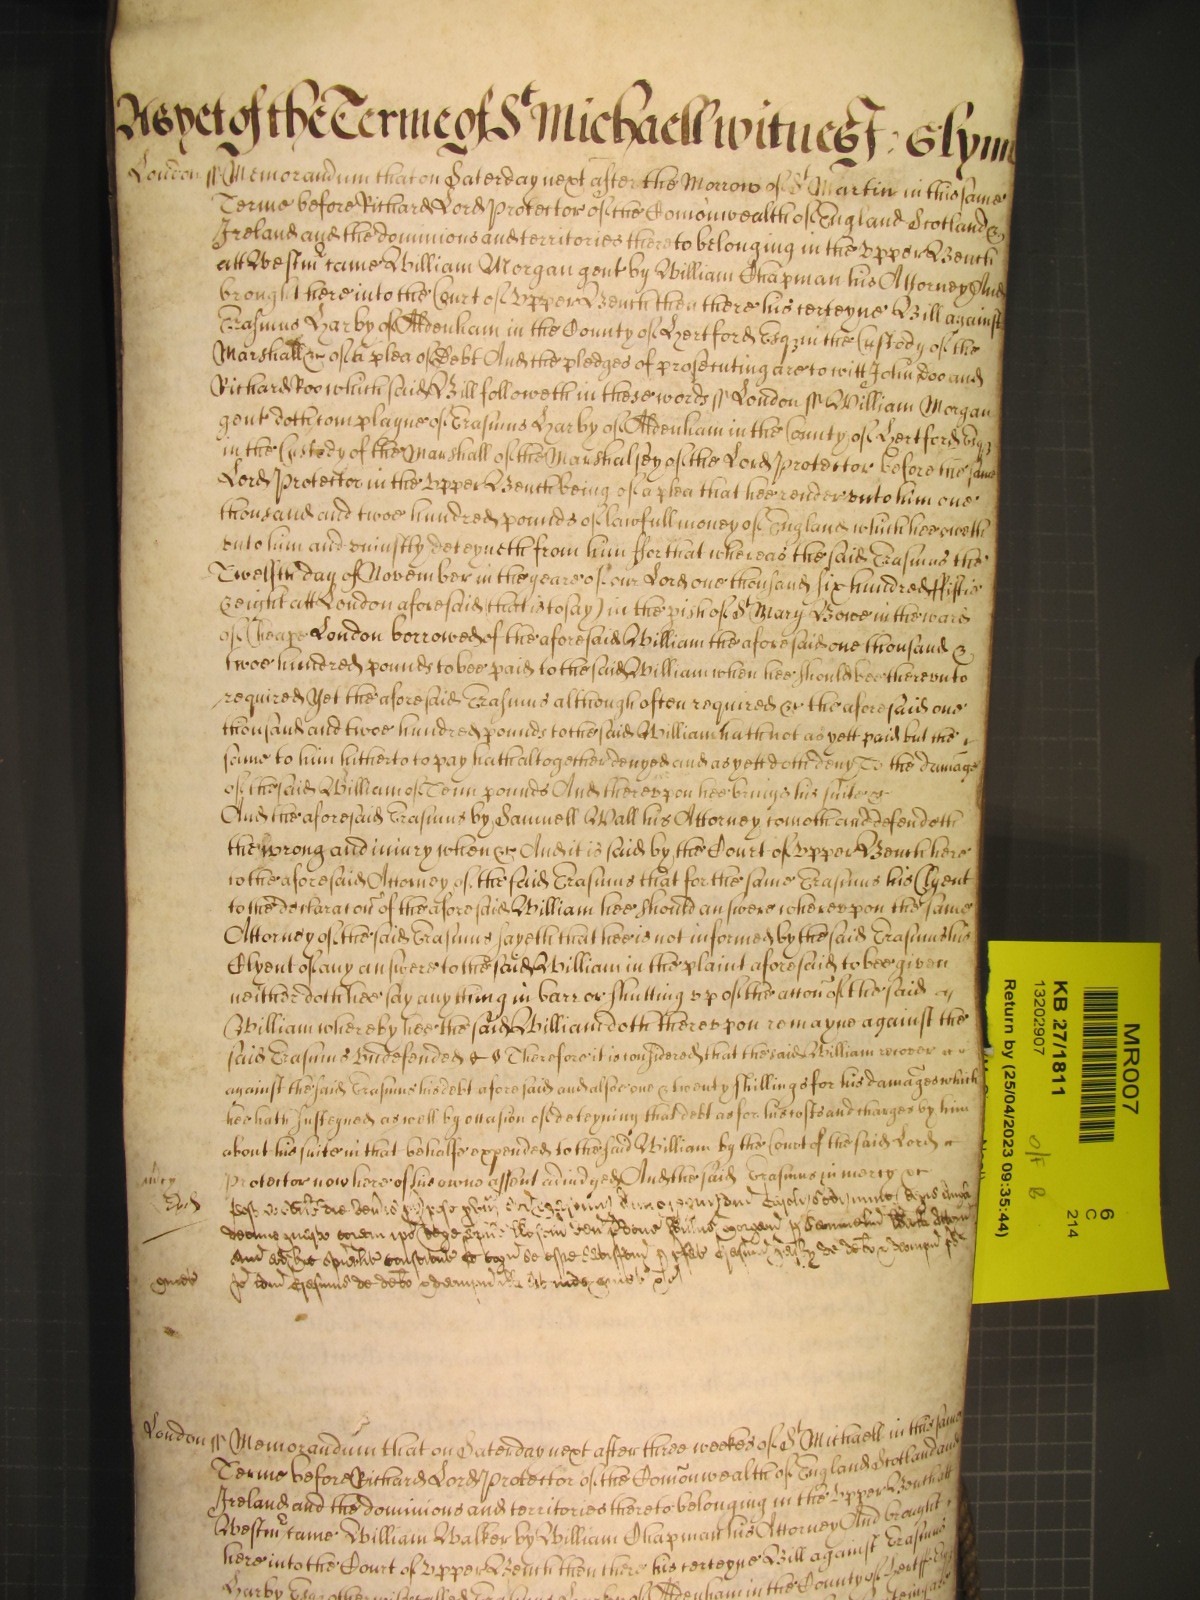 As yet of the Terme of St Michaell witness J: Glynn
London ss Memorandum that on Saterday next after the Morrow of St Martin in this same
Terme before Richard Lord Protector of the Comonwealth of England Scotland &
Ireland and the dominions and territories thereto belonging in the Vpper Bench
att Westmr came William Morgan gent by William Chapman his Attorney And
brought here into the Court of Vpper Bench then there his certeyne Bill against
Erasmus Harby of Aldenham in the County of Hertford Esqr in the Custody of the
Marshall &c of a plea of Debt And the pledges of prosecuting are to witt John Doo and
Richard Roo which said Bill followeth in these words ss London ss William Morgan
gent doth complayne of Erasmus Harby of Aldenham in the County of Hertford Esqr
in the Custody of the Marshall of the Marshalsey of the Lord Protector before the same
Lord Protector in the Vpper Bench being of a plea that hee render vnto him one
thousand and twoe hundred pounds of lawfull money of England which hee oweth
vnto him and vniustly deteyneth from him ffor that whereas the said Erasmus the
Twelfth day of November in the yeare of our Lord one thousand six hundred ffiftie
& eight att London aforesaid (that is to say) in the pish of St Mary Bowe in the ward
of Cheape London borrowed of the aforesaid William the aforesaid one thousand &
twoe hundred pounds to bee paid to the said William when hee should bee therevnto
required Yet the aforesaid Erasmus although often required &c the aforesaid one
thousand and twoe hundred pounds to the said William hath not as yett paid but the
same to him hitherto to pay hath altogether denyed and as yett doth deny To the damage
of the said William of Tenn pounds And therevpon hee brings his suite &c
And the aforesaid Erasmus by Samuell Wall his Attorney cometh and defendeth
the wrong and iniury when &c And it is said by the Court of Vpper Bench here
to the aforesaid Attorney of the said Erasmus that for the same Erasmus his Clyent
to the declaracon of the aforesaid William hee should answere wherevpon the same
Attorney of the said Erasmus sayeth that hee is not informed by the said Erasmus his
Clyent of any answere to the said William in the plaint aforesaid to bee given
neither doth hee say any thing in barr or shutting vp of the accon of the said
William whereby hee the said William doth therevpon remayne against the
said Erasmus vndefended &c Therefore it is considered that the said William recover
against the said Erasmus his debt aforesaid and alsoe one & twenty shillings for his damages which
hee hath susteyned as well by occasion of deteyning that debt as for his costs and charges by him
about his suite in that behalfe expended to the said William by the Court of the said Lord
Protector now here of his owne assent adiudged And the said Erasmus in mercy &c
London ss Memorandum that on Saterday next after three weekes of St Michaell in this same
Terme before Richard Lord Protector of the Comonwealth of England Scotland and
Ireland and the dominions and territories thereto belonging in the Vpper Bench att
Westmr came William Walker by William Chapman his Attorney And brought
here into the Court of Vpper Bench then there his certeyne Bill against Erasmus
Harby Esqr otherwise called Erasmus Harby of Aldenham in the County of Hertf Esqr
MR007
KB 27/1811
13202907
Return by (25/04/2023 09:35:44)
6
C
214